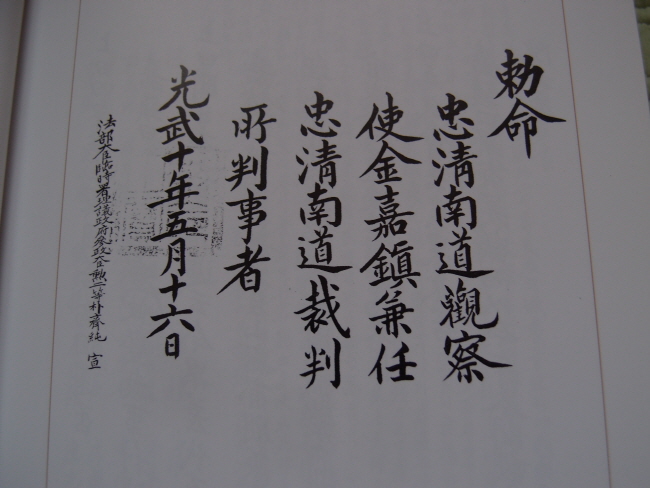 勅命
忠清南道觀察
使金嘉鎭兼任
忠清南道裁判
所判事者
光武十年五月十六日
法部大臣臨時署理議政府參政大臣勲一等朴齊純 宣